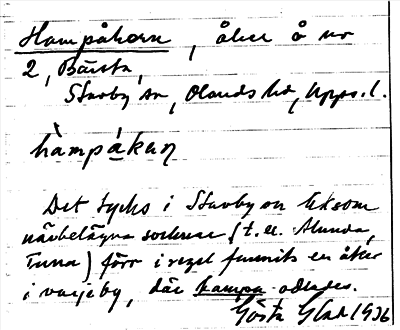 Hampåkern, åker å nr
2, Bärsta,
Stavby sn, Olands hd, Upps. l.
hàmpákan
Det tycks i Stavby sn liksom
närbelägna socknar (t. ex. Alunda,
Tuna) förr i regel funnits en åker
i varje by, där hampa odlades.
Gösta Glad 1936